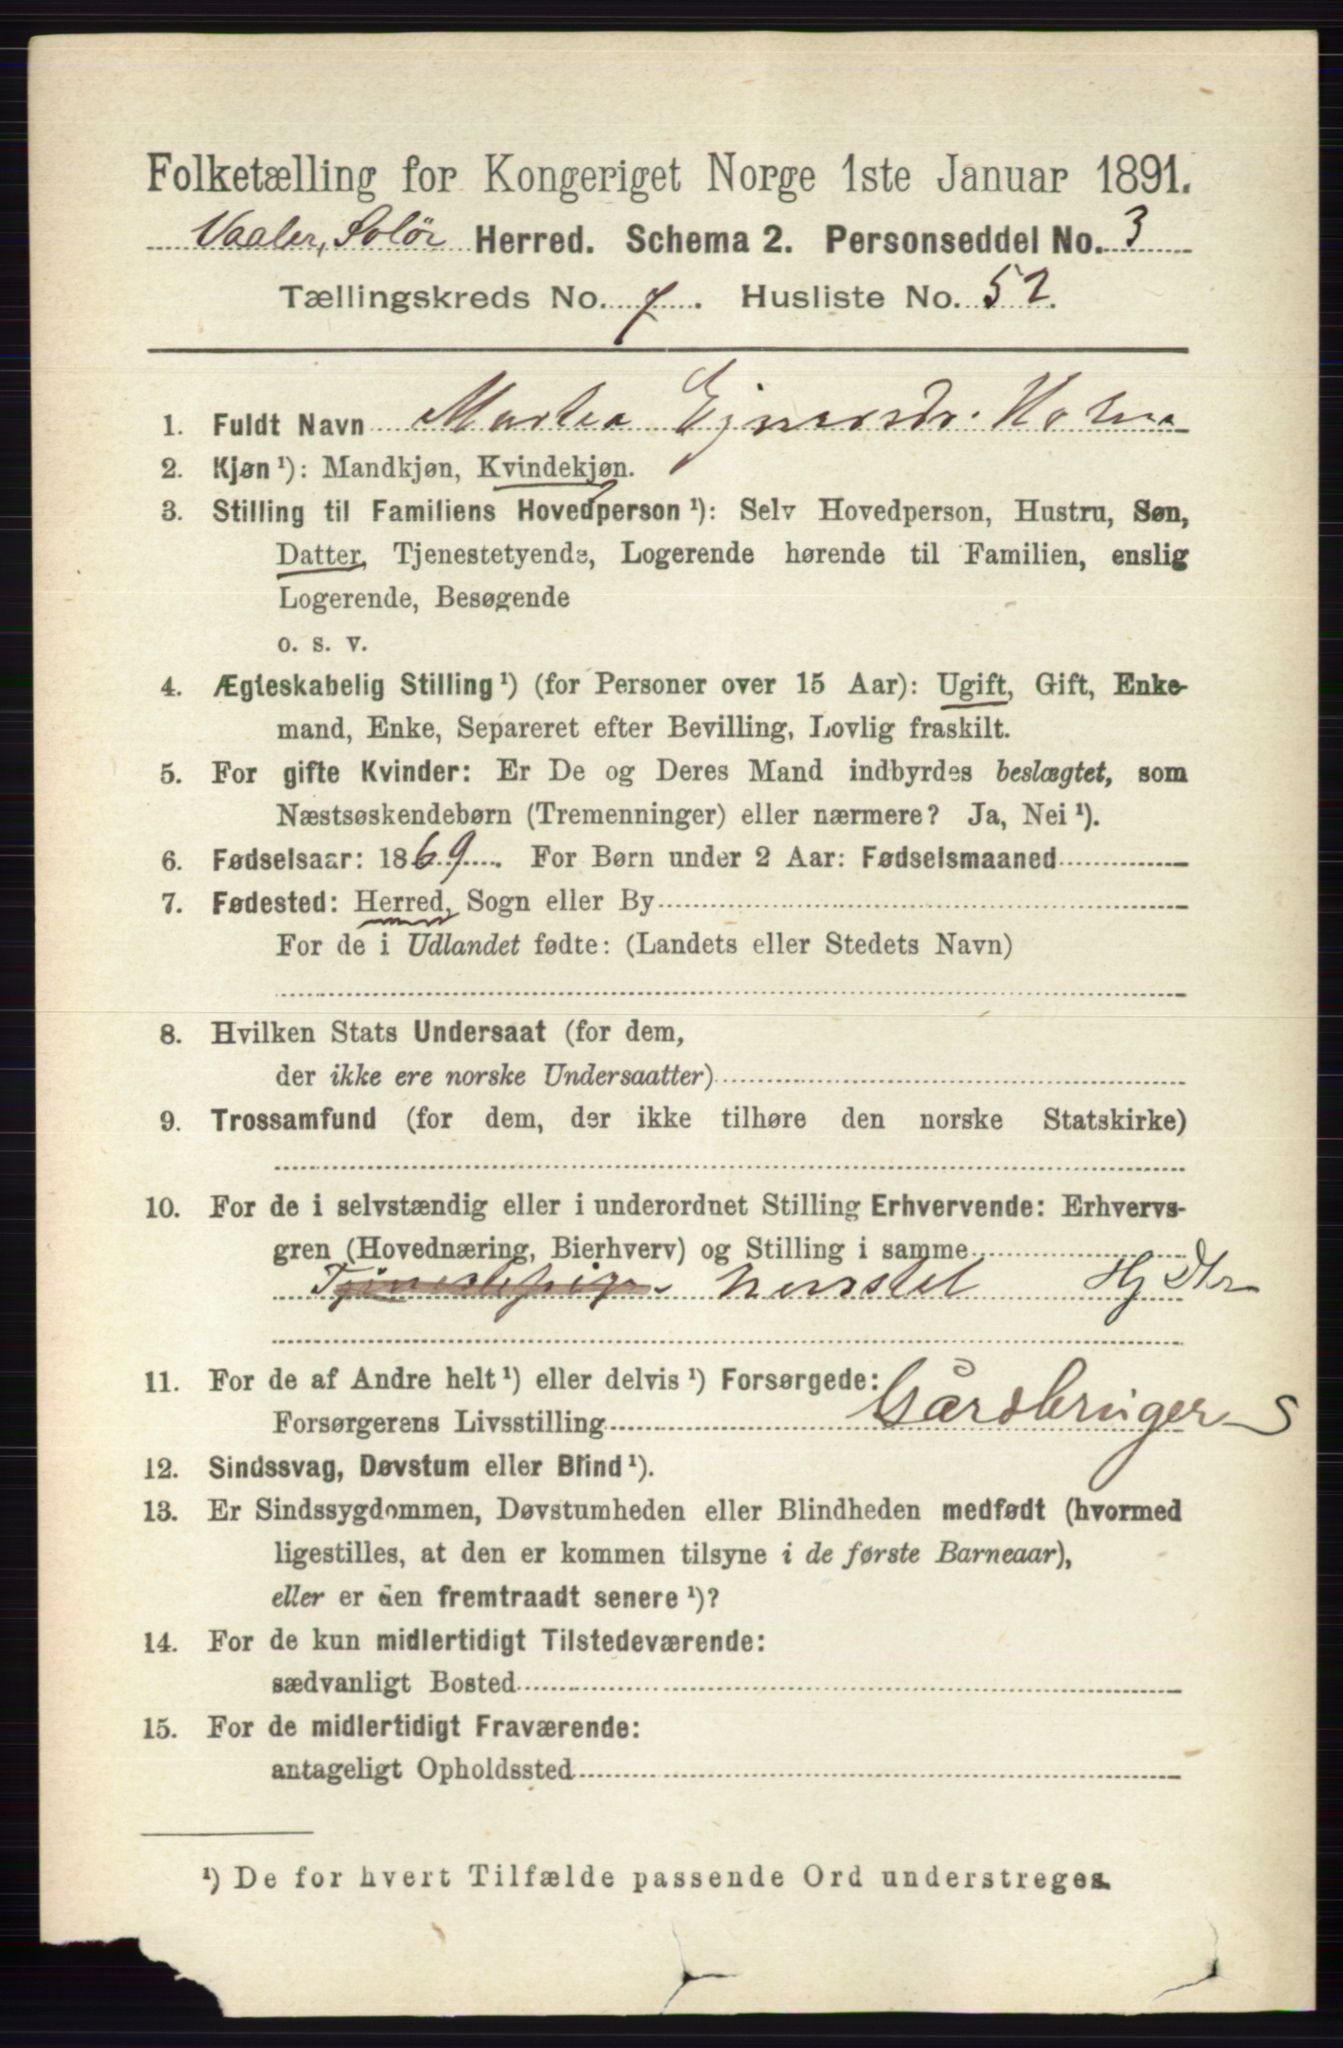 Folketælling for Kongeriget Norge 1ste Januar 1891.
Vaaler, Solör Herred. Schema 2. Personseddel No. 3
Tællingskreds No. 7. Husliste No. 52.
1. Fuldt Navn Martea Ejnarsdr. Holm
2. Kjøn ¹): Mandkjøn, Kvindekjøn.
3. Stilling til Familiens Hovedperson ¹): Selv Hovedperson, Hustru, Søn,
Datter, Tjenestetyende, Logerende hørende til Familien, enslig
Logerende, Besøgende
o. s. v.
4. Ægteskabelig Stilling ¹) (for Personer over 15 Aar): Ugift, Gift, Enke-
mand, Enke, Separeret efter Bevilling, Lovlig fraskilt.
5. For gifte Kvinder: Er De og Deres Mand indbyrdes beslægtet, som
Næstsøskendebørn (Tremenninger) eller nærmere? Ja, Nei ¹).
6. Fødselsaar: 1869. For Børn under 2 Aar: Fødselsmaaned
7. Fødested: Herred, Sogn eller By
For de i Udlandet fødte: (Landets eller Stedets Navn)
8. Hvilken Stats Undersaat (for dem,
der ikke ere norske Undersaatter)
9. Trossamfund (for dem, der ikke tilhøre den norske Statskirke)
10. For de i selvstændig eller i underordnet Stilling Erhvervende: Erhvervs-
gren (Hovednæring, Bierhverv) og Stilling i samme
Tjenestepige Hj Dtr
11. For de af Andre helt ¹) eller delvis ¹) Forsørgede:
Forsørgerens Livsstilling Gårdbruger S
12. Sindssvag, Døvstum eller Blind ¹).
13. Er Sindssygdommen, Døvstumheden eller Blindheden medfødt (hvormed
ligestilles, at den er kommen tilsyne i de første Barneaar),
eller er den fremtraadt senere ¹)?
14. For de kun midlertidigt Tilstedeværende:
sædvanligt Bosted
15. For de midlertidigt Fraværende:
antageligt Opholdssted
¹) De for hvert Tilfælde passende Ord understreges.